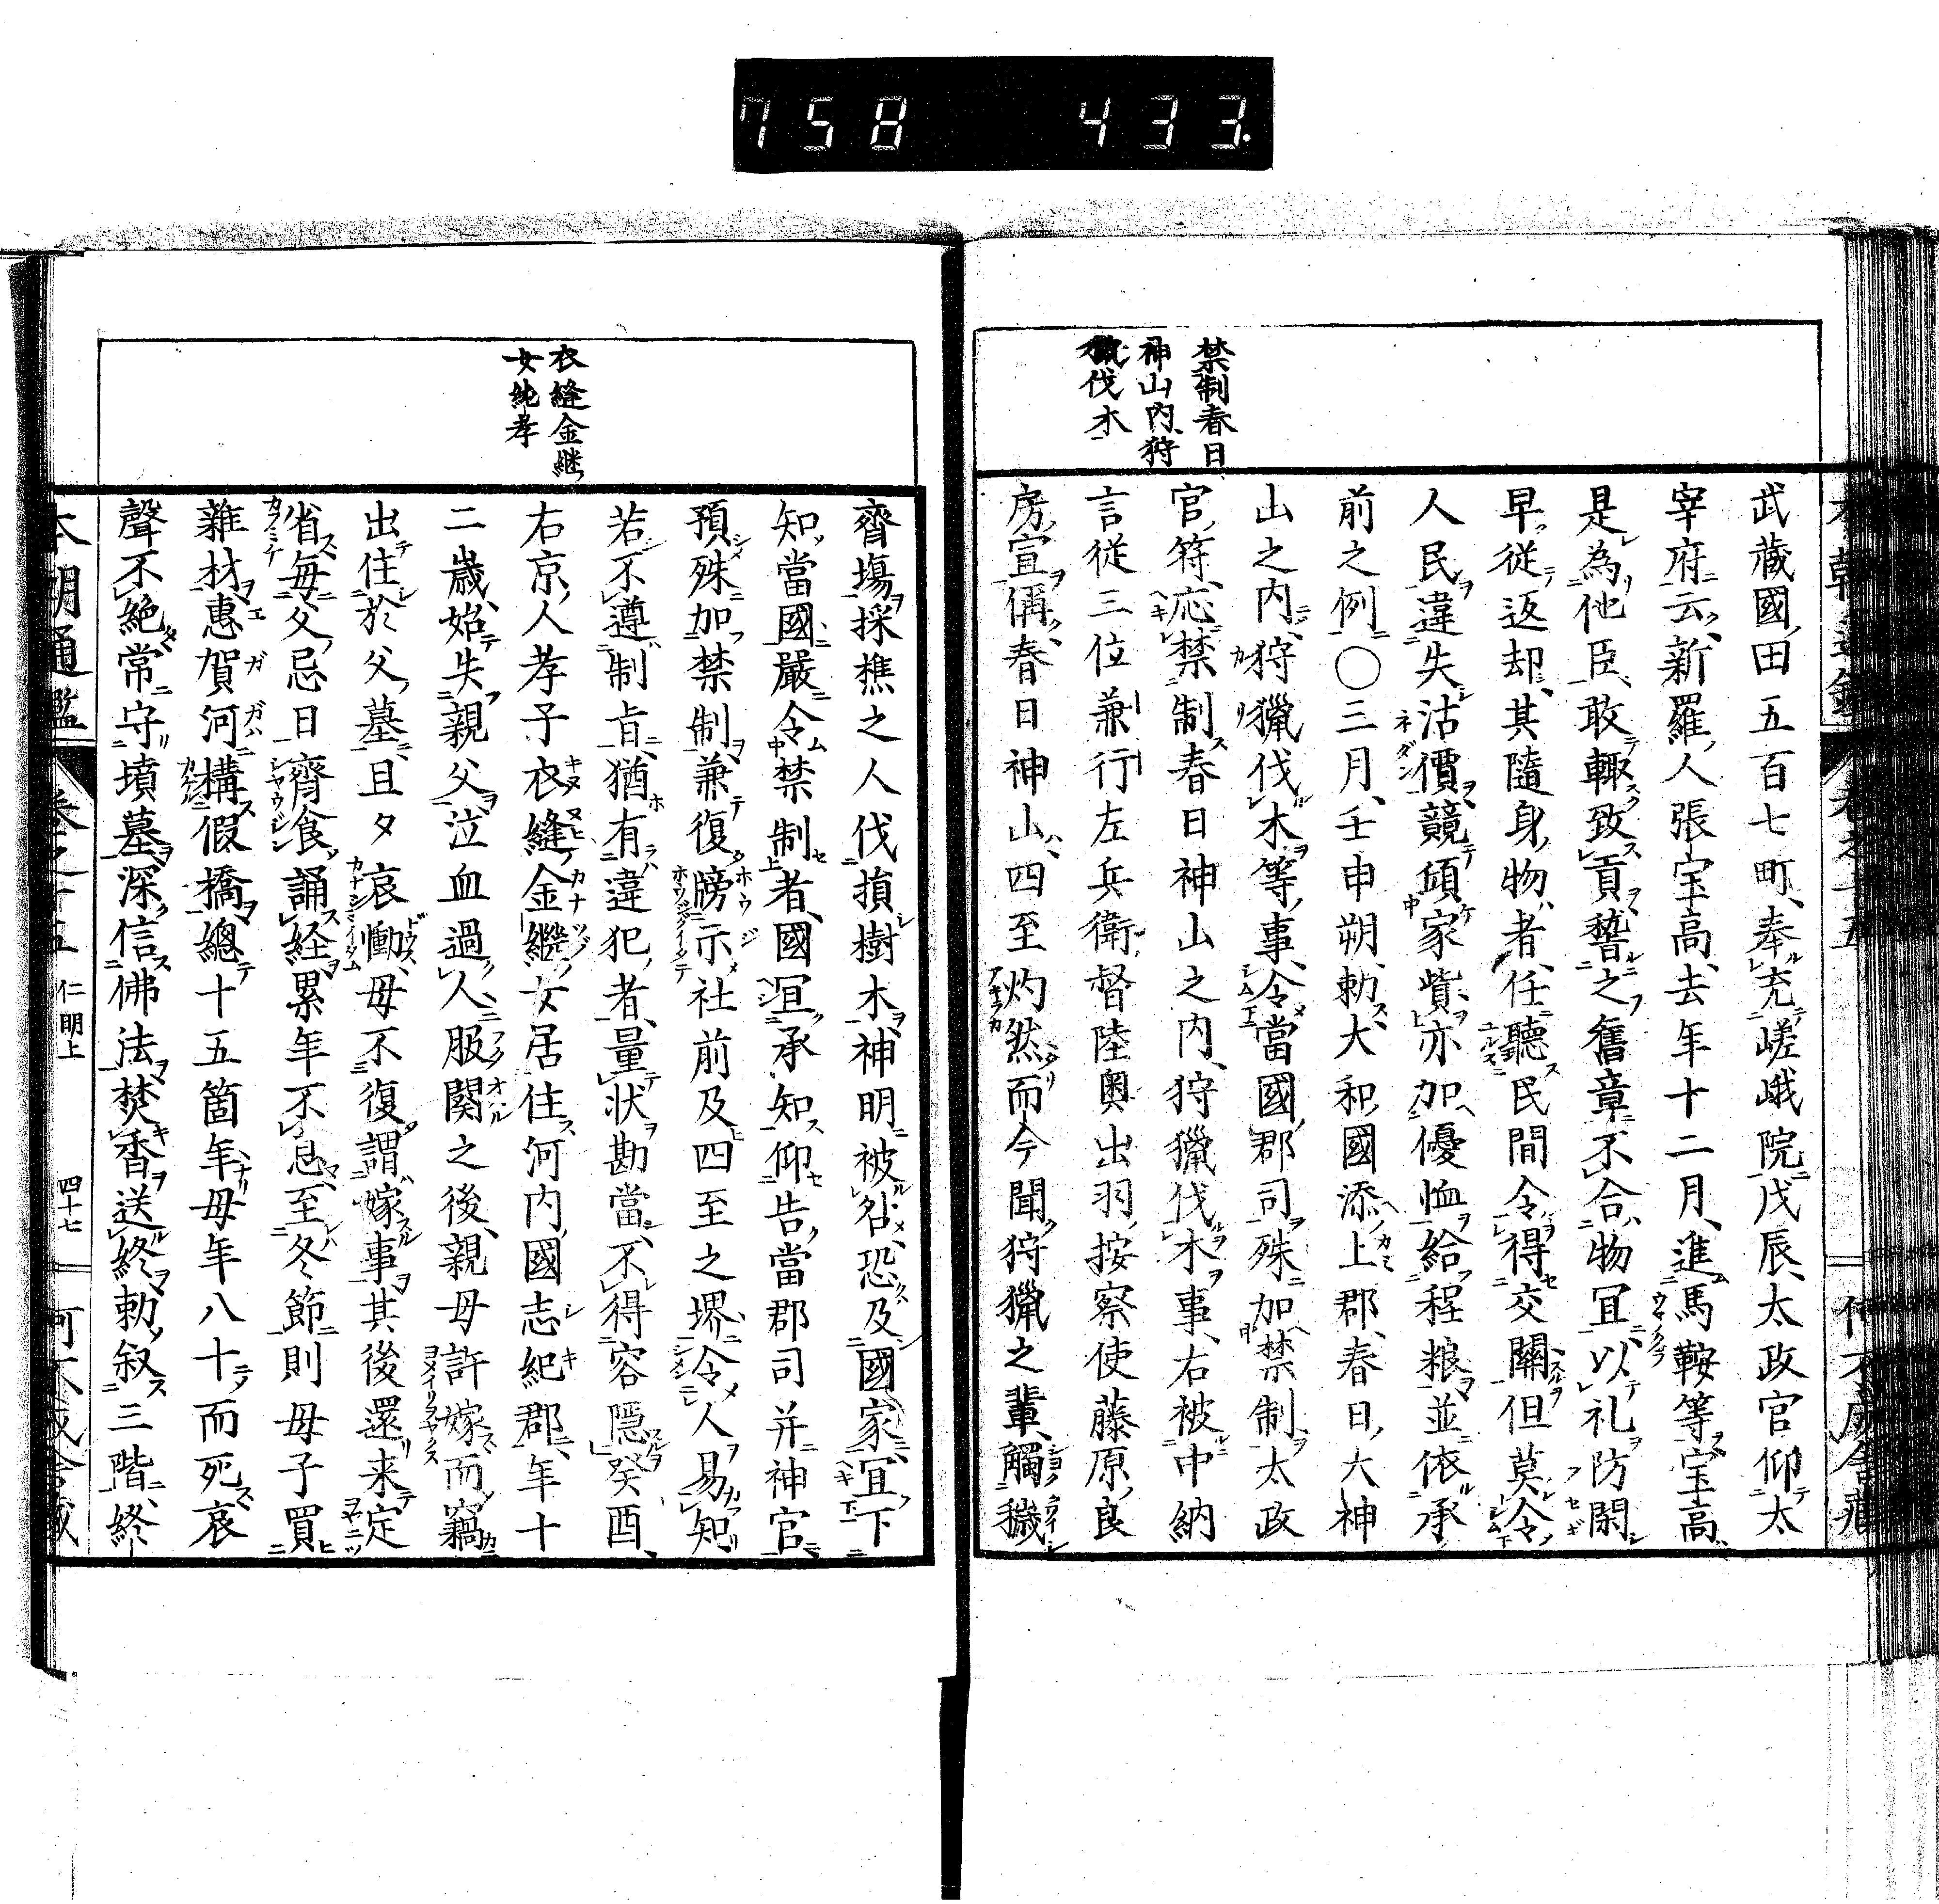 758 433.
禁制春日
神山内狩
猟伐木
武蔵國田五百七町奉充嵯峨院戊辰太政官仰太
宰府云新羅人張宝高去年十二月進馬鞍等宝高
是為他臣敢輙致貢贄之舊章不合物冝以礼防閑
早従返却其隨身物者任聽民間令得交關但莫令
人民違失沽價競傾家貲亦加優恤給程粮並依承
前之例〇三月壬申朔勅大和國添上郡春日大神
山之内狩獵伐木等事令當國郡司殊加禁制太政
官符応禁制春日神山之内狩獵伐木事右被中納
言従三位兼行左兵衛督陸奥出羽按察使藤原良
房宣偁春日神山四至灼然而今聞狩獵之輩觸穢
衣縫金継
女純孝
齊場採樵之人伐損樹木神明被咎恐及國家冝下
知當國嚴令禁制者國冝承知仰告當郡司并神官
預殊加禁制兼復牓示社前及四至之堺令人易知
若不遵制旨猶有違犯者量状勘當不得容隱癸酉
右京人孝子衣縫金繼女居住河内國志紀郡年十
二歳始失親父泣血過人服闋之後親母許嫁而竊
出住於父墓且夕哀慟母不復謂嫁事其後還来定
省毎父忌日齊食誦経累年不息至冬節則母子買
雜材惠賀河構假橋總十五箇年母年八十而死哀
聲不絶常守墳墓深信佛法焚香送終勅叙三階終
本朝通鑑 卷之十五 仁明上 四十七